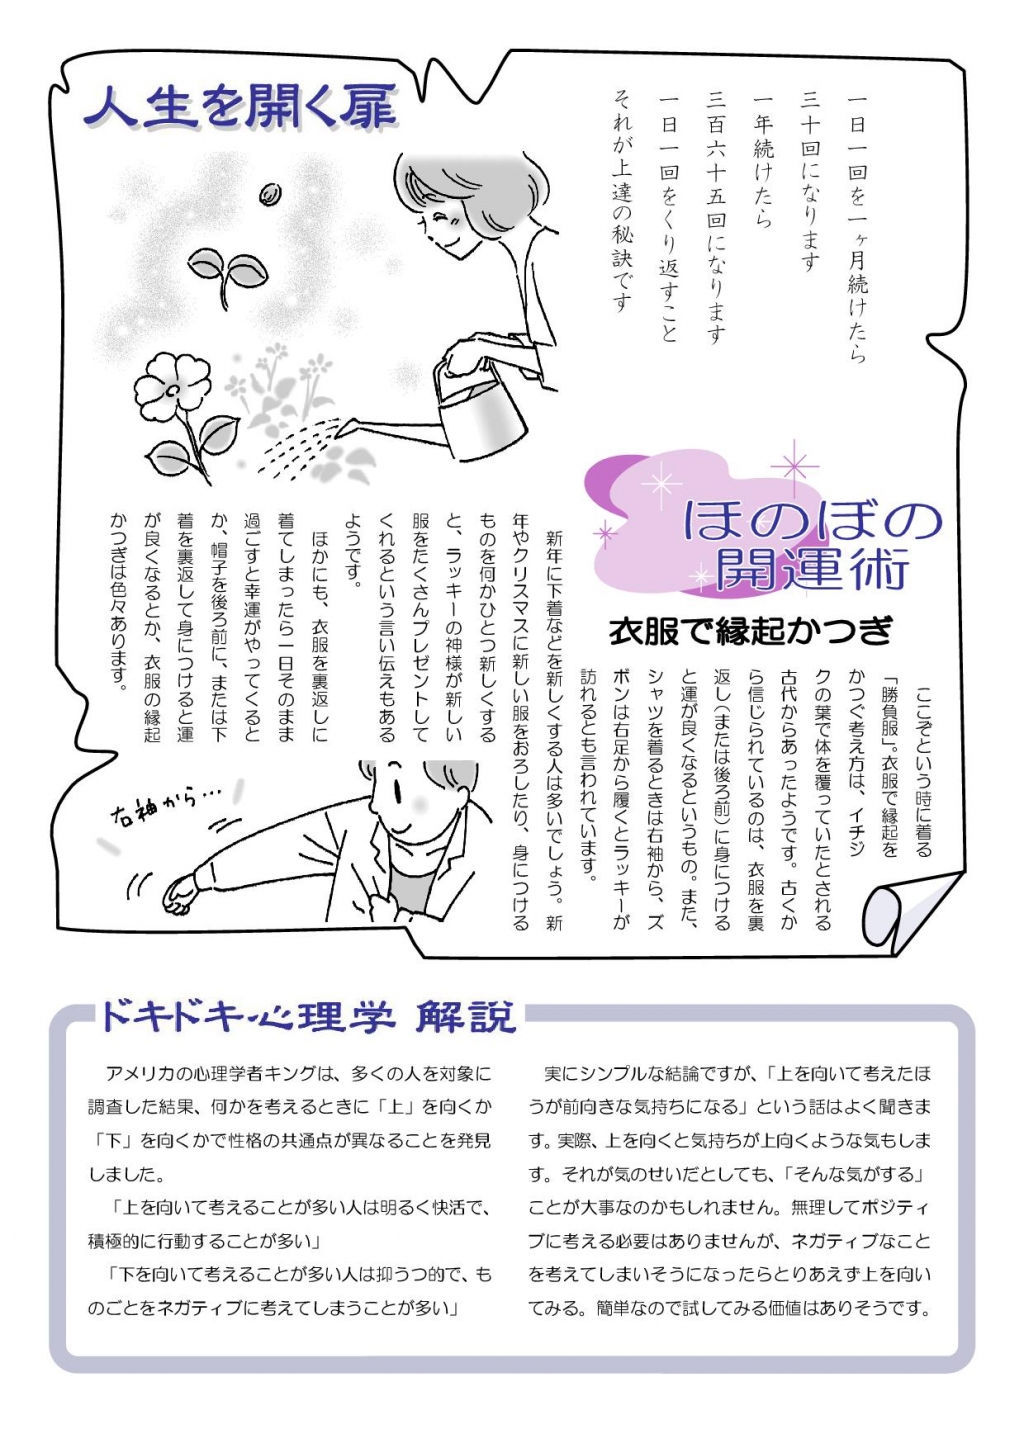 人生を開く扉
一日一回を一ヶ月続けたら
三十回になります
一年続けたら
三百六十五回になります
一日一回をくり返すこと
それが上達の秘訣です
ほのぼの
開運術
衣服で縁起かつぎ
ここぞという時に着る
「勝負服」。衣服で縁起を
かつぐ考え方は、イチジ
クの葉で体を覆っていたとされる
古代からあったようです。古くか
ら信じられているのは、衣服を裏
返し(または後ろ前)に身につける
と運が良くなるというもの。また、
シャツを着るときは右袖から、ズ
ボンは右足から履くとラッキーが
訪れるとも言われています。
新年に下着などを新しくする人は多いでしょう。新
年やクリスマスに新しい服をおろしたり、身につける
ものを何かひとつ新しくする
と、ラッキーの神様が新しい
服をたくさんプレゼントして
くれるという言い伝えもある
ようです。
ほかにも、衣服を裏返しに
着てしまったら一日そのまま
過ごすと幸運がやってくると
か、帽子を後ろ前に、または下
着を裏返して身につけると運
が良くなるとか、衣服の縁起
かつぎは色々あります。
右袖から…
ドキドキ心理学 解説
アメリカの心理学者キングは、多くの人を対象に
調査した結果、何かを考えるときに「上」を向くか
「下」を向くかで性格の共通点が異なることを発見
しました。
「上を向いて考えることが多い人は明るく快活で、
積極的に行動することが多い」
「下を向いて考えることが多い人は抑うつ的で、も
のごとをネガティブに考えてしまうことが多い」
実にシンプルな結論ですが、「上を向いて考えたほ
うが前向きな気持ちになる」という話はよく聞きま
す。実際、上を向くと気持ちが上向くような気もしま
す。それが気のせいだとしても、「そんな気がする」
ことが大事なのかもしれません。無理してポジティ
ブに考える必要はありませんが、ネガティブなこと
を考えてしまいそうになったらとりあえず上を向い
てみる。簡単なので試してみる価値はありそうです。